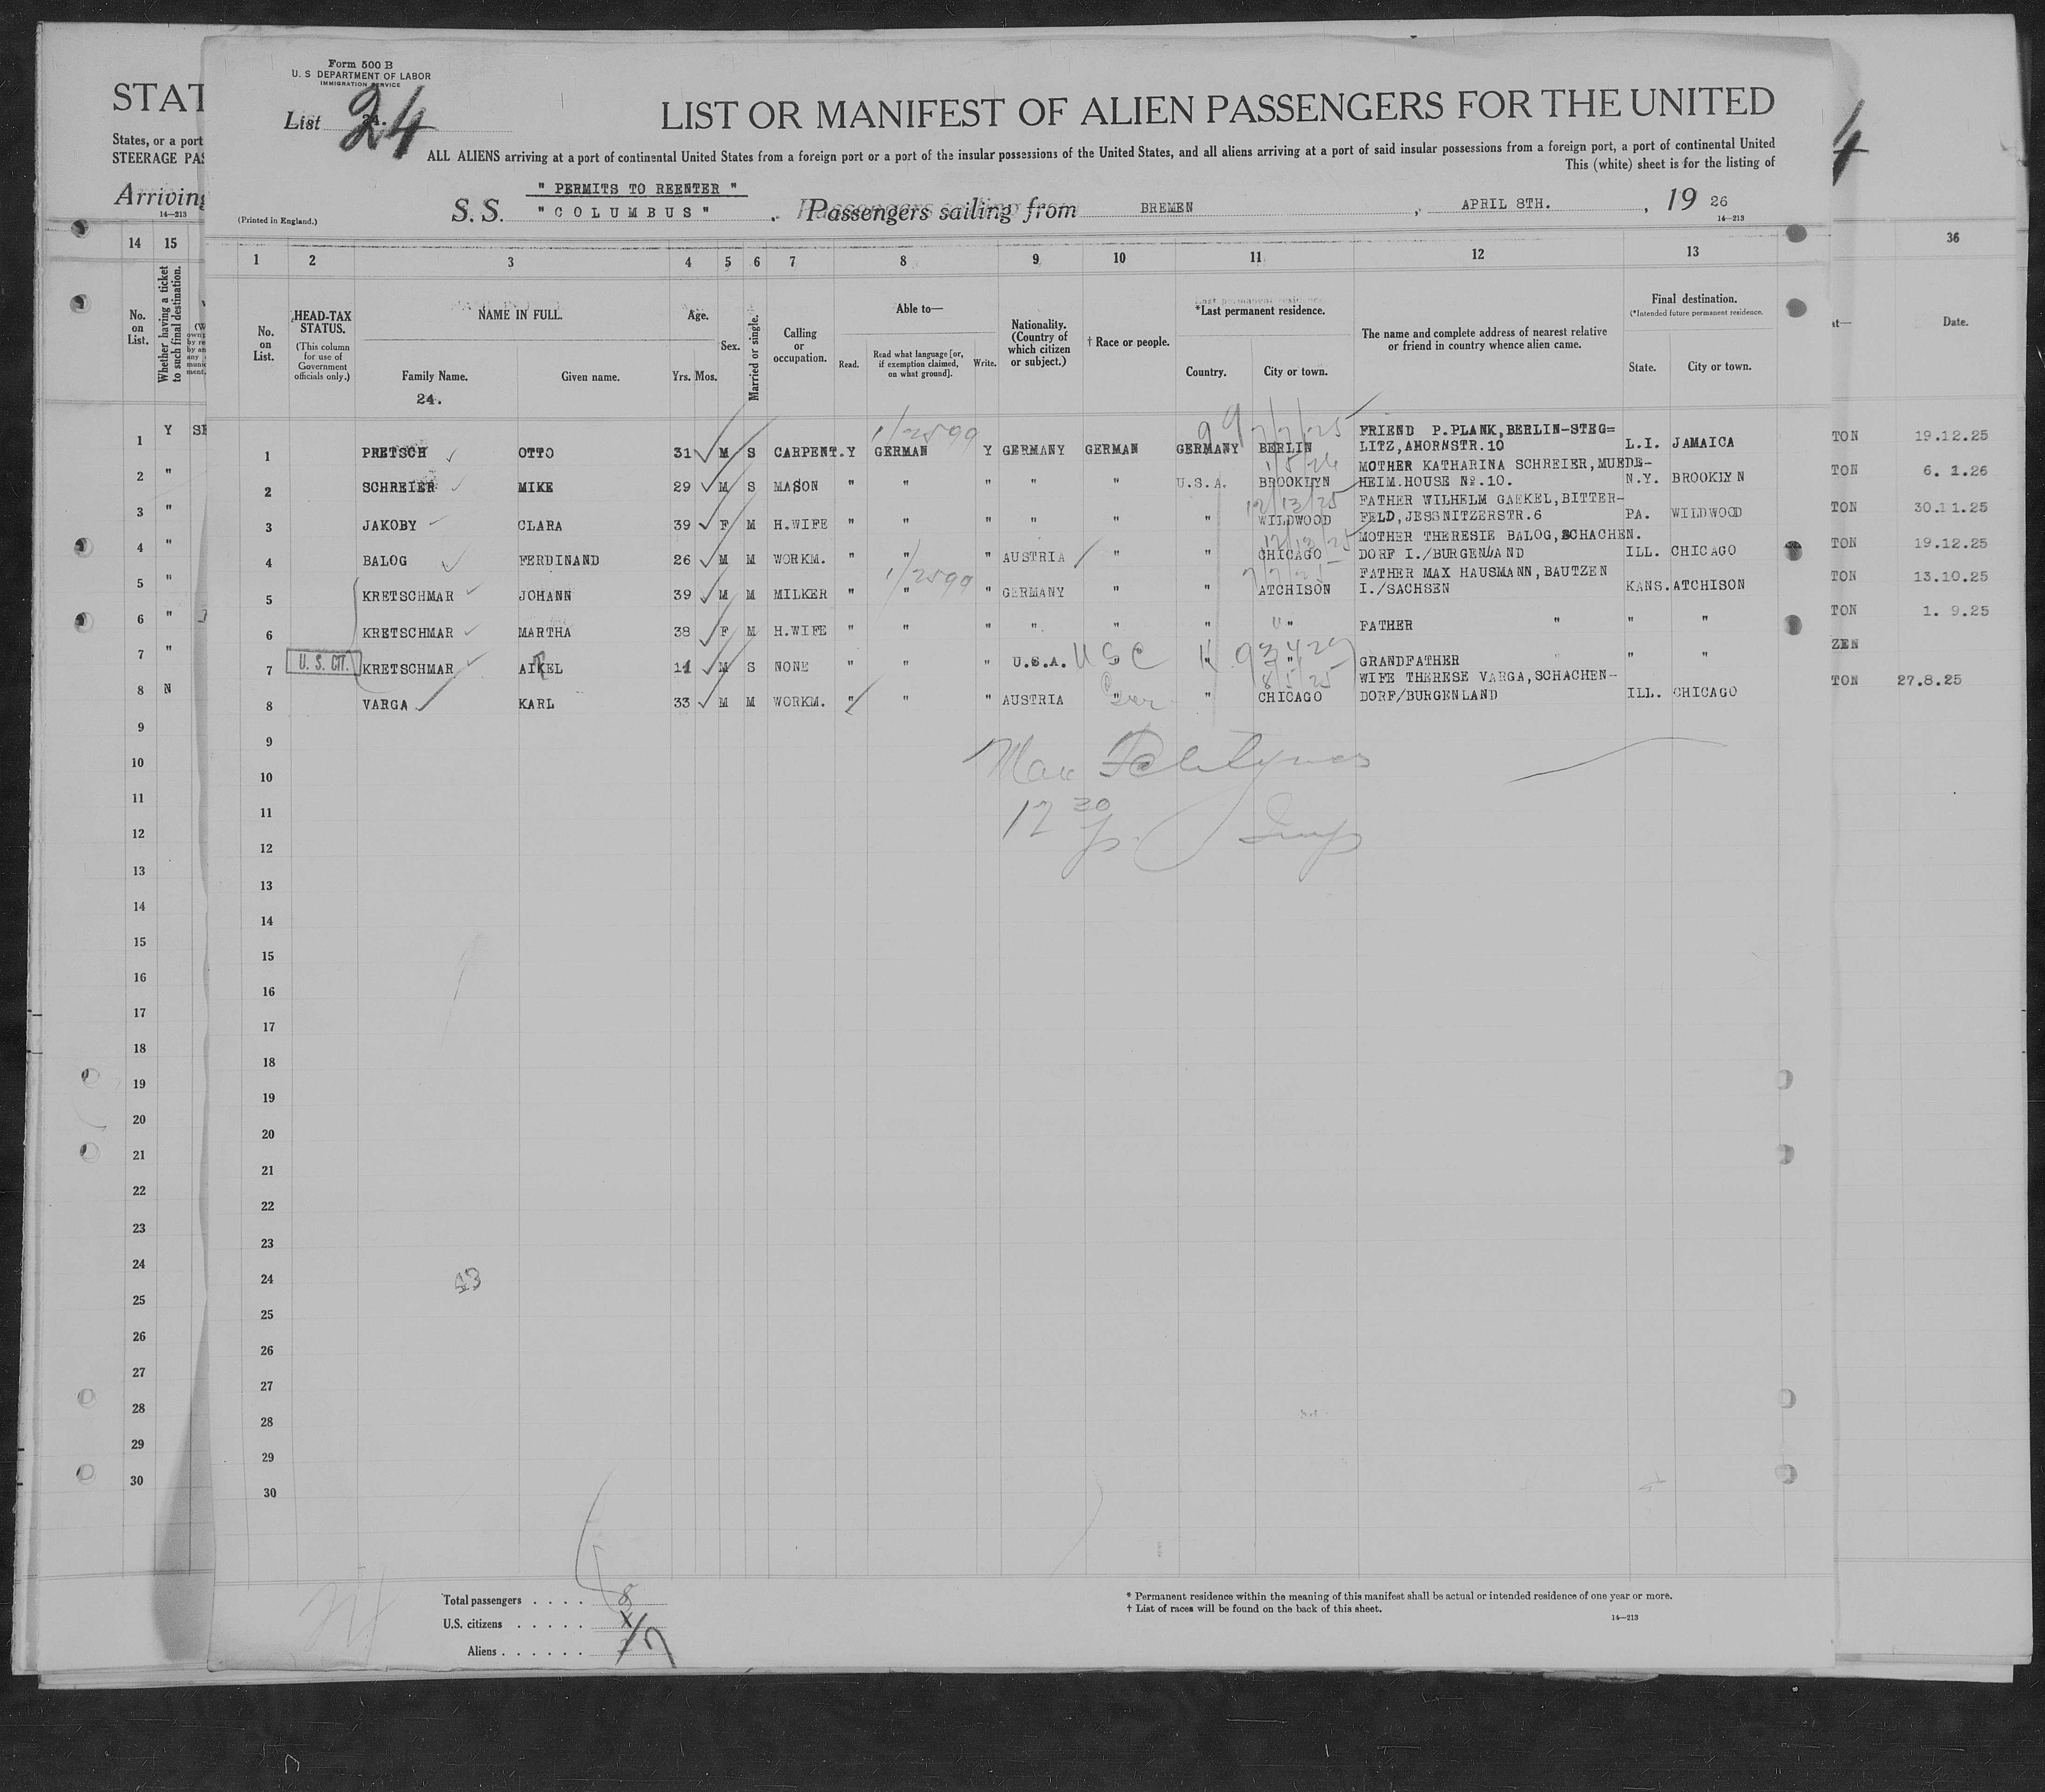 STAT
States, or a port
STEERAGE PAS
Arriving
14—213
Form 500 B
U. S DEPARTMENT OF LABOR
IMMIGRATION SERVICE
List 24
LIST OR MANIFEST OF ALIEN PASSENGERS FOR THE UNITED
ALL ALIENS arriving at a port of continental United States from a foreign port or a port of the insular possessions of the United States, and all aliens arriving at a port of said insular possessions from a foreign port, a port of continental United
This (white) sheet is for the listing of
" PERMITS TO REENTER "
(Printed in England.) S. S. " C O L U M B U S " . Passengers sailing from BREMEN , APRIL 8TH. , 19 26
14—213
14 15 1 2 3 4 5 6 7 8 9 10 11 12 13 36
No. on List.
Whether having a ticket to such final destination.
No. on List.
HEAD-TAX STATUS.
(This column for use of Government officials only.)
NAME IN FULL.
Family Name.
Given name.
24.
Age.
Yrs. Mos.
Sex.
Married or single.
Calling or occupation.
Able to—
Read.
Read what language [or, if exemption claimed, on what ground].
Write.
Nationality. (Country of which citizen or subject.)
† Race or people.
*Last permanent residence.
Country.
City or town.
The name and complete address of nearest relative or friend in country whence alien came.
Final destination.
(*Intended future permanent residence.
State.
City or town.
Date.
1/2599 99 7/7/25 FRIEND P.PLANK,BERLIN-STEG=
1 PRETSCH OTTO 31 M S CARPENT. Y GERMAN Y GERMANY GERMAN GERMANY BERLIN LITZ,AHORNSTR.10 L.I. JAMAICA
1/5/26 MOTHER KATHARINA SCHREIER,MUEDE-
2 SCHREIER MIKE 29 M S MASON " " " " " U.S.A. BROOKLYN HEIM.HOUSE No.10. N.Y. BROOKLYN
12/13/25 FATHER WILHELM GAEKEL,BITTER-
3 JAKOBY CLARA 39 F M H.WIFE " " " " " " WILDWOOD FELD,JESSNITZERSTR.6 PA. WILDWOOD
12/13/25 MOTHER THERESIE BALOG,SCHACHEN.
4 BALOG FERDINAND 26 M M WORKM. " " " AUSTRIA " " CHICAGO DORF I./BURGENLAND ILL. CHICAGO
1/2599 FATHER MAX HAUSMANN,BAUTZEN
5 KRETSCHMAR JOHANN 39 M M MILKER " " " GERMANY " " ATCHISON I./SACHSEN KANS. ATCHISON
6 KRETSCHMAR MARTHA 38 F M H.WIFE " " " " " " " FATHER " " "
7 U. S. CIT. KRETSCHMAR AIKEL 11 M S NONE " " " U.S.A. USC " " GRANDFATHER " " "
8/5/25 WIFE THERESE VARGA,SCHACHEN-
8 VARGA KARL 33 M M WORKM. " " " AUSTRIA " " CHICAGO DORF/BURGENLAND ILL. CHICAGO
9
10
11
12
13
14
15
16
17
18
19
20
21
22
23
24
25
26
27
28
29
30
43
1 Y
2 "
3 "
4 "
5 "
6 "
7 "
8 N
9
10
11
12
13
14
15
16
17
18
19
20
21
22
23
24
25
26
27
28
29
30
TON 19.12.25
TON 6. 1.26
TON 30.11.25
TON 19.12.25
TON 13.10.25
TON 1. 9.25
ZEN
TON 27.8.25
Total passengers . . . . 8
U.S. citizens . . . . . .
Aliens . . . . . . 7
* Permanent residence within the meaning of this manifest shall be actual or intended residence of one year or more.
† List of races will be found on the back of this sheet.
14—213